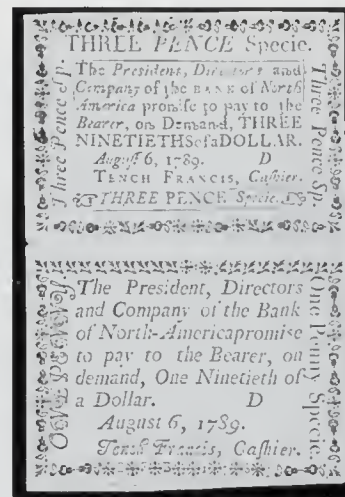 THREE PENCE Specie.
The President, Directors and
Company of the BANK of North
America promise to pay to the
Bearer, on Demand, THREE
NINETIETHS of a DOLLAR.
August 6, 1789. D
TENCH FRANCIS, Cashier.
THREE PENCE Specie.
Three Pence Sp.
Three Pence Sp.
The President, Directors
and Company of the Bank
of North-America promise
to pay to the Bearer, on
demand, One Ninetieth of
a Dollar. D
August 6, 1789.
Tench Francis, Cashier.
ONE PENNY.
One Penny Specie.